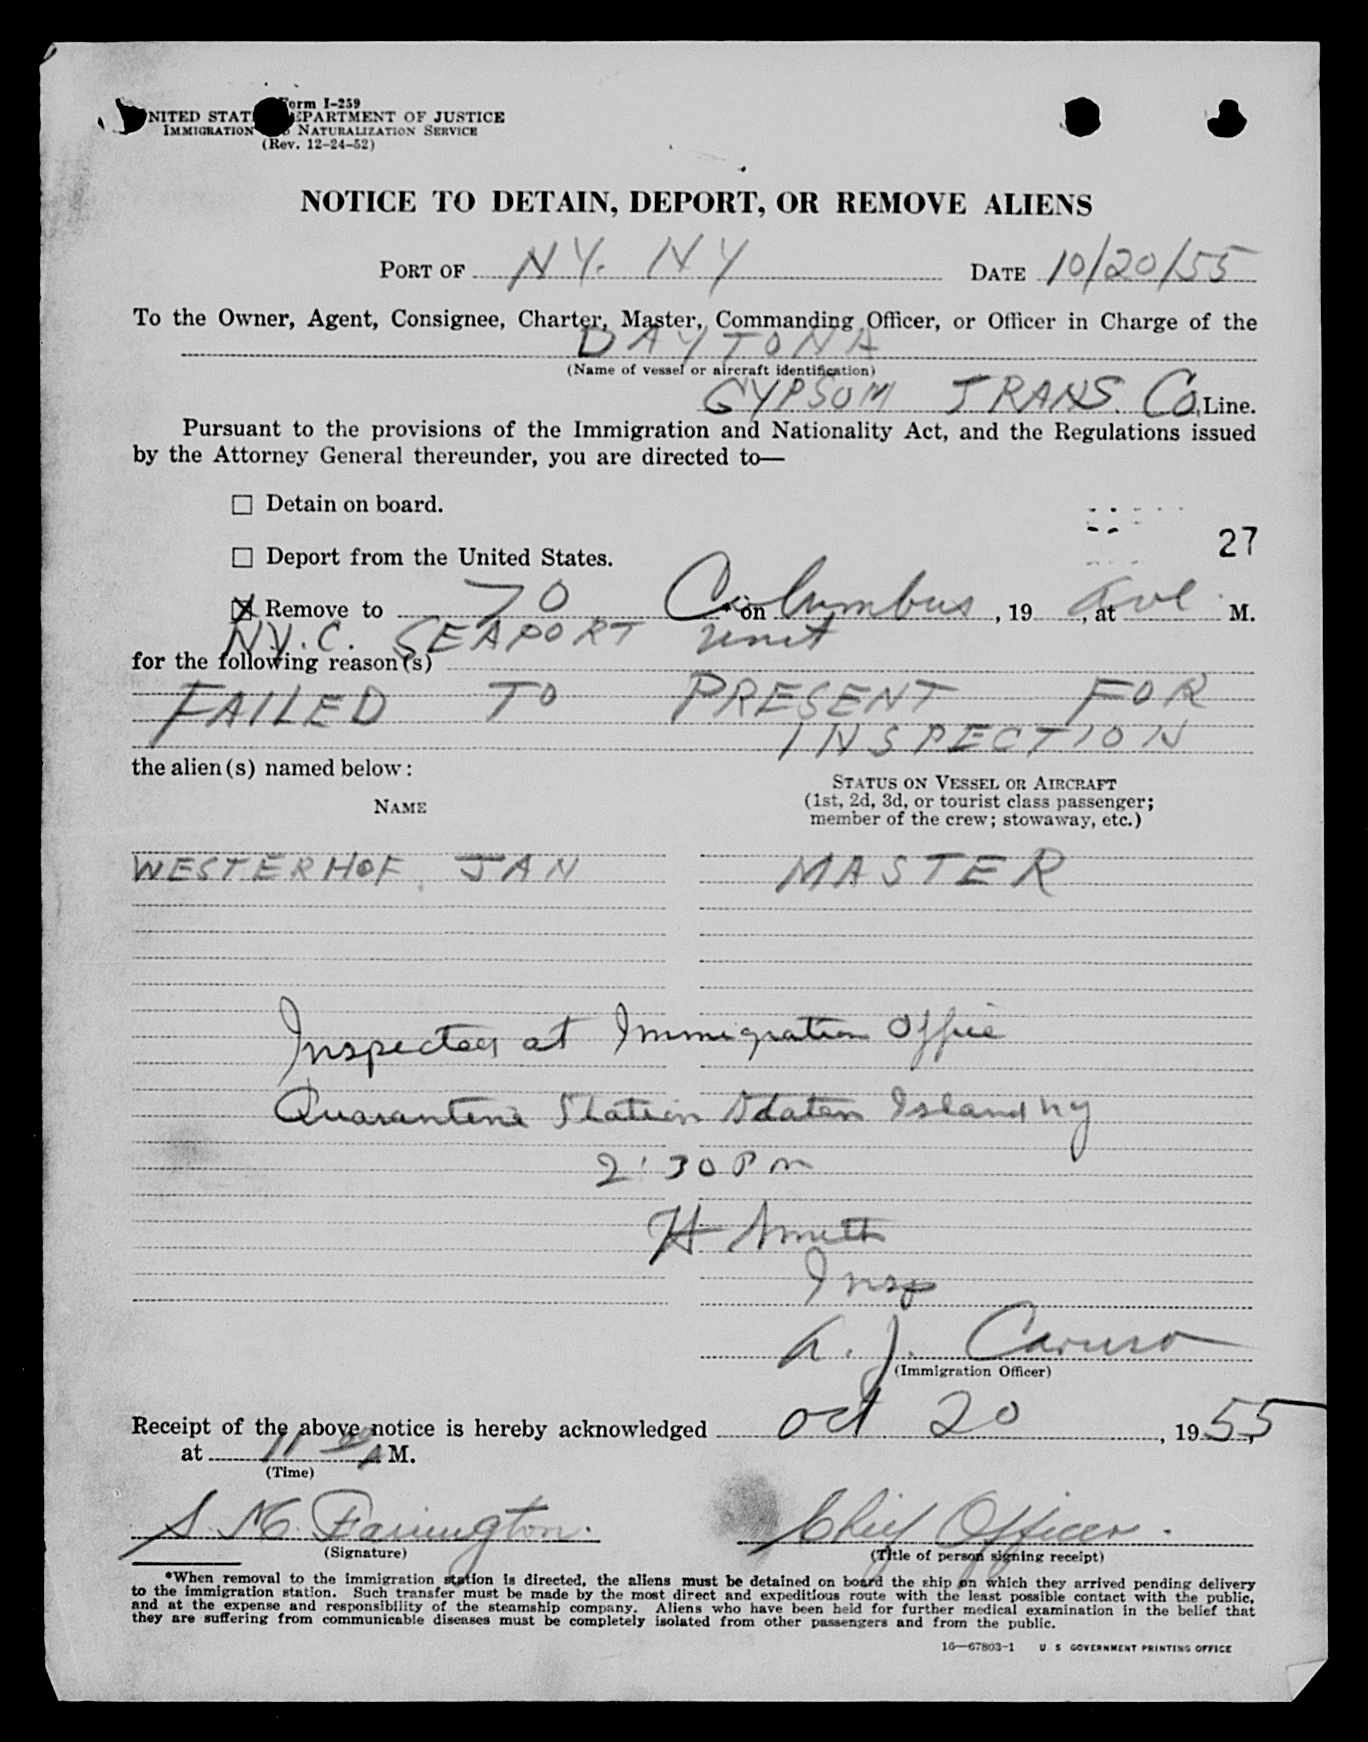 Form I-259
UNITED STATES DEPARTMENT OF JUSTICE
IMMIGRATION AND NATURALIZATION SERVICE
(Rev. 12-24-52)
NOTICE TO DETAIN, DEPORT, OR REMOVE ALIENS
PORT OF NY. NY DATE 10/20/55
To the Owner, Agent, Consignee, Charter, Master, Commanding Officer, or Officer in Charge of the
DAYTONA
(Name of vessel or aircraft identification)
GYPSUM TRANS. Co, Line.
Pursuant to the provisions of the Immigration and Nationality Act, and the Regulations issued
by the Attorney General thereunder, you are directed to—
☐ Detain on board.
27
☐ Deport from the United States.
☒ Remove to 70 Columbus Ave * on , 19 , at M.
N.Y.C. SEAPORT Unit
for the following reason(s)
FAILED TO PRESENT FOR
INSPECTION
the alien(s) named below:
NAME
STATUS ON VESSEL OR AIRCRAFT
(1st, 2d, 3d, or tourist class passenger;
member of the crew; stowaway, etc.)
WESTERHOF, JAN MASTER
Inspected at Immigration Office
Quarantine Station Staten Island NY
2:30 Pm
H Smith
Insp
A. J. Caruso
(Immigration Officer)
Receipt of the above notice is hereby acknowledged Oct 20, 1955,
at 11 00 A M.
(Time)
S. M. Farrington. Chief Officer.
(Signature) (Title of person signing receipt)
*When removal to the immigration station is directed, the aliens must be detained on board the ship on which they arrived pending delivery
to the immigration station. Such transfer must be made by the most direct and expeditious route with the least possible contact with the public,
and at the expense and responsibility of the steamship company. Aliens who have been held for further medical examination in the belief that
they are suffering from communicable diseases must be completely isolated from other passengers and from the public.
16—67803-1 U. S. GOVERNMENT PRINTING OFFICE